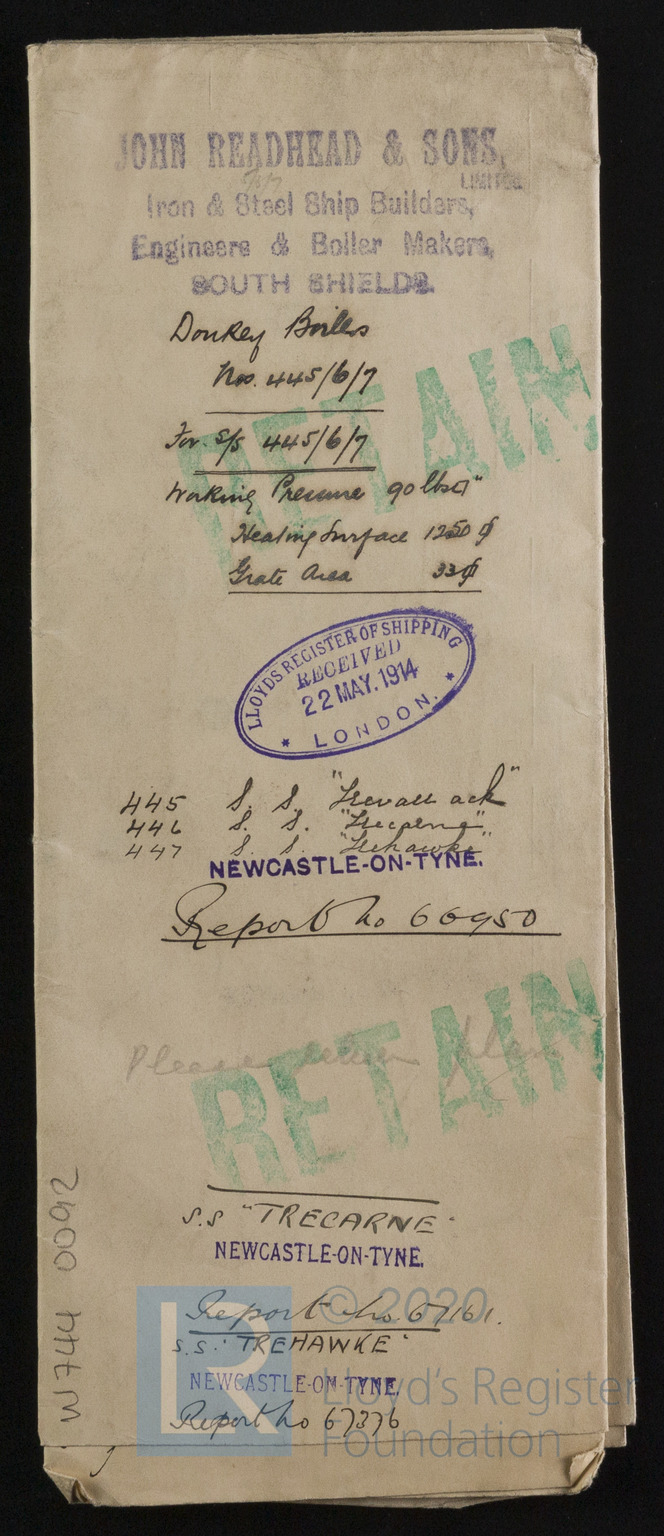 JOHN READHEAD & SONS,
LIMITED
Iron & Steel Ship Builders,
Engineers & Boiler Makers,
SOUTH SHIELDS.
Donkey Boilers
Nos. 445/6/7
For S/S 445/6/7
Working Pressure 90 lbs □"
Heating Surface 1250
Grate Area 33
RETAIN
LLOYDS REGISTER OF SHIPPING
RECEIVED
22 MAY. 1914
* LONDON. *
445 S. S. "Trevallack"
446 S. S. "Trecarne"
447 S. S. "Trehawke"
NEWCASTLE-ON-TYNE.
Report No 66950
Please return plan
RETAIN
S.S "TRECARNE"
NEWCASTLE-ON-TYNE.
Report No. 67161.
S.S. "TREHAWKE"
NEWCASTLE-ON-TYNE.
Report No 67376
W744 0092
LR
© 2020
Lloyd's Register
Foundation